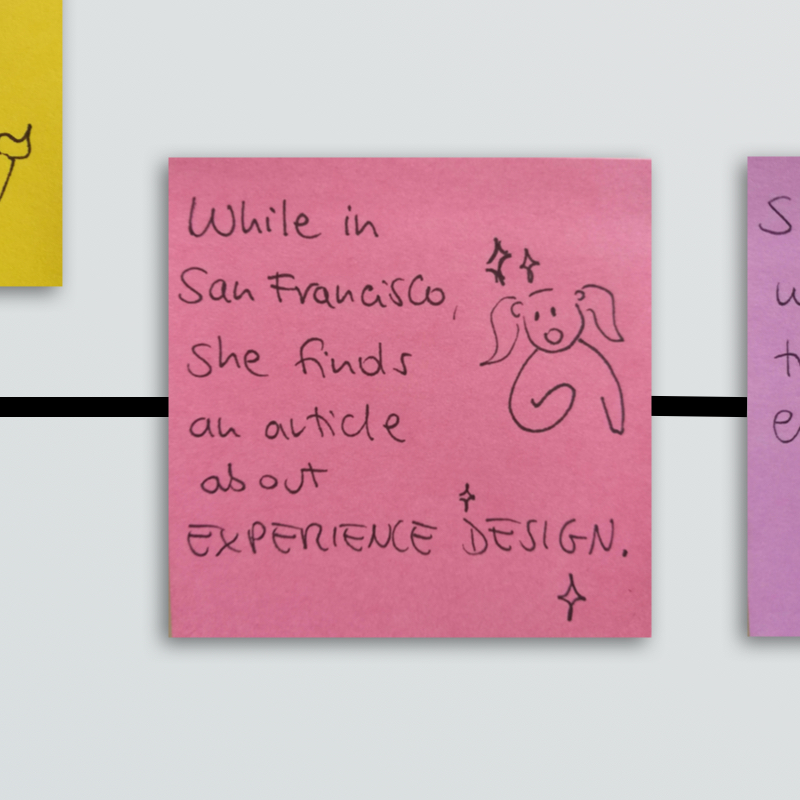 While in
San Francisco,
She finds
an article
about
EXPERIENCE DESIGN.